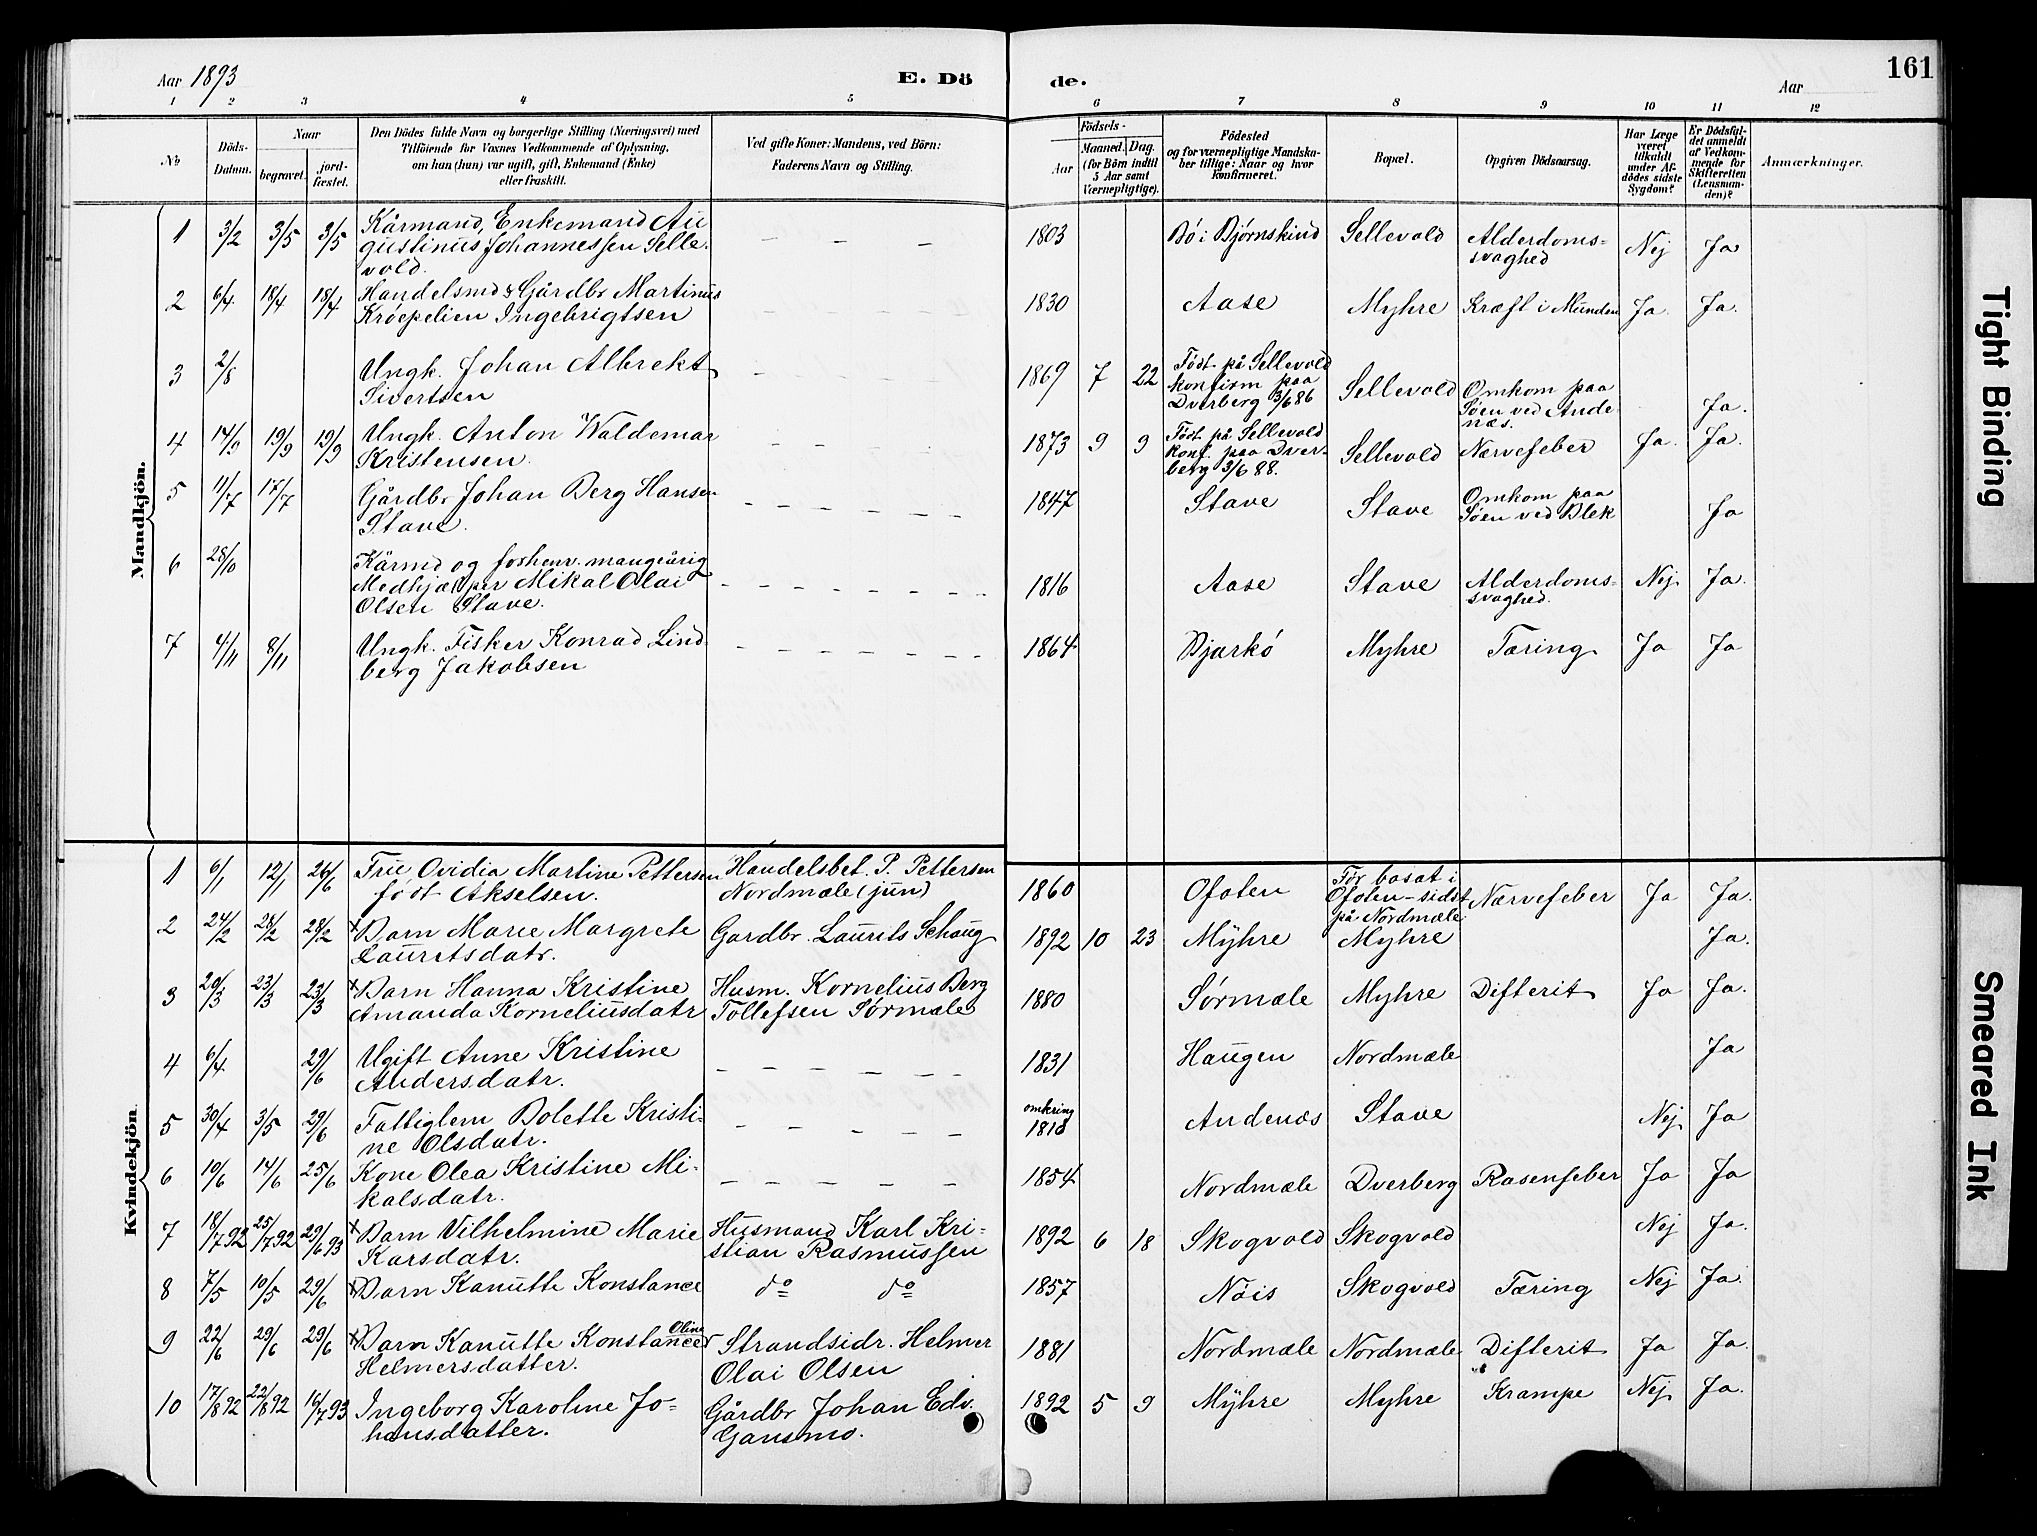 Aar 1893
E. Dö
de.
Aar
161
1 2 3 4 5 6 7 8 9 10 11 12
No
Döds-
Datum.
Naar
begravet.
jord-
fæstet.
Den Dödes fulde Navn og borgerlige Stilling (Næringsvei) med
Tilföiende for Voxnes Vedkommende af Oplysning,
om han (hun) var ugift, gift, Enkemand (Enke)
eller fraskilt.
Ved gifte Koner: Mandens, ved Börn:
Faderens Navn og Stilling.
Födsels-
Aar
Maaned. Dag.
(for Börn indtil
5 Aar samt
Værnepligtige).
Födested
og for værnepligtige Mandska-
ber tillige: Naar og hvor
konfirmeret.
Bopæl.
Opgiven Dödsaarsag.
Har Læge
været
tilkaldt
under Af-
dödes sidste
Sygdom?
Er Dödsfal-
det anmeldt
af Vedkom-
mende for
Skifteretten
(Lensman-
den)?
Anmærkninger.
Mandkjön.
1 3/2 3/5 3/5 Kårmand, Enkemand Au
gustinus Johannessen Selle-
vold.
– – – 1803 Bø i Bjørnskind Sellevold Alderdoms=
svaghed Nej Ja
2 6/4 18/4 18/4 Handelsmd & Gårdbr Martinus
Krøepelien Ingebrigtsen
1830 Aase Myhre Kræft i Munden Ja. Ja.
3 2/8 Ungk. Johan Albrekt
Sivertsen
1869 7 22 Født på Sellevold
konfirm paa
Dverberg 3/6 86
Sellevold Omkom paa
Søen ved Ande
næs. Ja.
4 14/9 19/9 19/9 Ungk. Anton Waldemar
Kristensen
1873 9 9 Født på Sellevold
konf. paa Dver-
berg 3/6 88.
Sellevold Nærvefeber Ja. Ja.
5 11/7 17/7 Gårdbr Johan Berg Hansen
Stave.
1847 Stave Stave Omkom paa
Søen ved Blek Ja
6 28/10 Kårmd og forhenv. mangeårig
Medhjælper Mikal Olai
Olsen Stave.
1816 Aase Stave Alderdoms=
svaghed. Nej Ja.
7 4/11 8/11 Ungk. Fisker Konrad Lind-
berg Jakobsen
1864 Bjarkö Myhre Tæring Ja Ja
Kvindekjön.
1 6/1 12/1 26/6 Frue Ovidia Martine Pettersen
født Akselsen.
Handelsbet. P. Pettersen
Nordmæle (jun)
1860 Ofoten Før bosat i
Ofoten – sidst
på Nordmæle.
Nærvefeber Ja Ja.
2 24/2 28/2 28/2 x Barn Marie Margrete
Lauritsdatr.
Gardbr. Laurits Schaug
1892 10 23 Myhre Myhre Ja.
3 20/3 23/3 23/3 x Barn Hanna Kristine
Amanda Korneliusdatr
Husm. Kornelius Berg
Tollefsen Sørmæle
1880 Sørmæle Myhre Difterit Ja Ja.
4 6/4 29/6 Ugift Anne Kristine
Andersdatr.
1831 Haugen Nordmæle Ja
5 30/4 3/5 29/6 Fattiglem Bolette Kristi-
ne Olsdatr.
omkring
1818 Andenæs Stave Nej Ja
6 10/6 14/6 25/6 Kone Olea Kristine Mi-
kalsdatr.
1854 Nordmæle Dverberg Rosenfeber Ja Ja
7 18/7 92 25/7 92 29/6 93 x Barn Vilhelmine Marie
Karsdatr.
Husmand Karl Kri-
stian Rasmussen
1892 6 18 Skogvold Skogvold Nej Ja.
8 7/5 10/5 29/6 x Barn Kanutte Konstance
do do
1857 Nöis Skogvold Tæring Nej Ja.
9 22/6 29/6 29/6 x Barn Kanutte Konstance Oline
Helmersdatter.
Strandsidr. Helmer
Olai Olsen
1881 Nordmæle Nordmæle Difterit Ja Ja.
10 17/8 92 22/8 92 16/7 93 Ingeborg Karoline Jo=
hansdatter.
Gårdbr Johan Edv.
Gausmo.
1892 5 9 Myhre Myhre Krampe Nej Ja.
Tight Binding
Smeared Ink